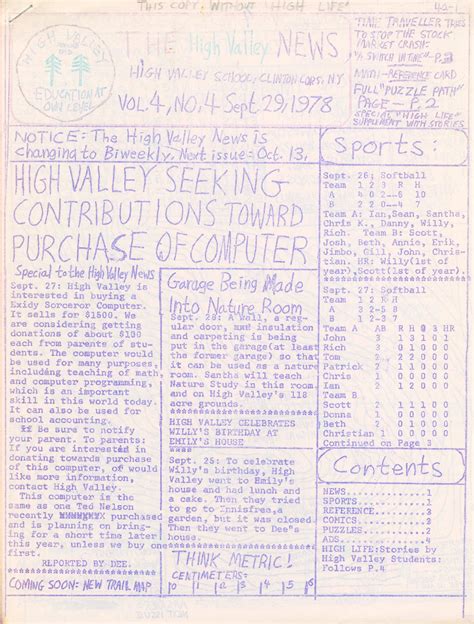 THIS COPY WITHOUT "HIGH LIFE"
HIGH VALLEY
EDUCATION AT
OWN LEVEL
THE High Valley NEWS
HIGH VALLEY SCHOOL, CLINTON CORS, NY
VOL. 4, NO. 4 Sept. 29, 1978
"TIME" TRAVELLER TRIES
TO STOP THE STOCK
MARKET CRASH:
P.3
MINI-REFERENCE CARD
FULL "PUZZLE PATH"
PAGE— P. 2
SPECIAL "HIGH LIFE"
SUPPLEMENT WITH STORIES
NOTICE: The High Valley News is
changing to Biweekly. Next issue: Oct. 13,
HIGH VALLEY SEEKING
CONTRIBUTIONS TOWARD
PURCHASE OF COMPUTER
Special to the High Valley News
Sept. 27: High Valley is
interested in buying a
Exidy Sorceror Computer.
It sells for $1500. We
are considering getting
donations of about $100
each from parents of stu-
dents. The computer would
be used for many purposes,
including teaching of math
and computer programming,
which is an important
skill in this world today.
It can also be used for
school accounting.
Be sure to notify
your parent. To parents:
If you are interested in
donating towards purchase
of this computer, of would
like more information,
contact High Valley.
This computer is the
same as one Ted Nelson
recently purchased
and is planning on bring-
ing for a short time later
this year, unless we buy one
first.
REPORTED BY DEE.
COMING SOON: NEW TRAIL MAP
Garage Being Made
Into Nature Room
Sept. 28: A wall, a reg-
ular door, insulation
and carpeting is being
put in the garage(at least
the former garage) so that
it can be used as a nature
room. Santha will teach
Nature Study in this room
and on High Valley's 118
acre grounds.
HIGH VALLEY CELEBRATES
WILLY'S BIRTHDAY AT
EMILY'S HOUSE
Sept. 25: To celebrate
Willy's birthday, High
Valley went to Emily's
house and had lunch and
a cake. Then they tried
to go to Innisfree, a
garden, but it was closed.
Then they went to Dee's
house.
THINK METRIC!
CENTIMETERS:
0 1 2 3 4 5 6
Sports:
Sept. 26: Softball
Team 1 2 3 R H
A 4 0 2--6 10
B 2 2 0--4 7
Team A: Ian, Sean, Santha,
Chris K., Danny, Willy,
Rich. Team B: Scott,
Josh, Beth, Annie, Erik,
Jimbo, Gill, John, Chris-
tian. HR: Willy(1st of
year). Scott(1st of year).
Sept. 27: Softball
Team 1 2 R H
A 3 2--5
B 1 2--3 7
Team A AB R H O 3 HR
John 3 1 3 1 0 1
Rich
Tom
Patrick
Chris
Ian
Team B
Scott
Donna
Beth
Christian
Continued on Page 3
Contents
NEWS...................1
SPORTS.................1
REFERENCE..............3
COMICS.................2
PUZZLES................2
ADS....................4
HIGH LIFE: Stories by
High Valley Students:
Follows P.4